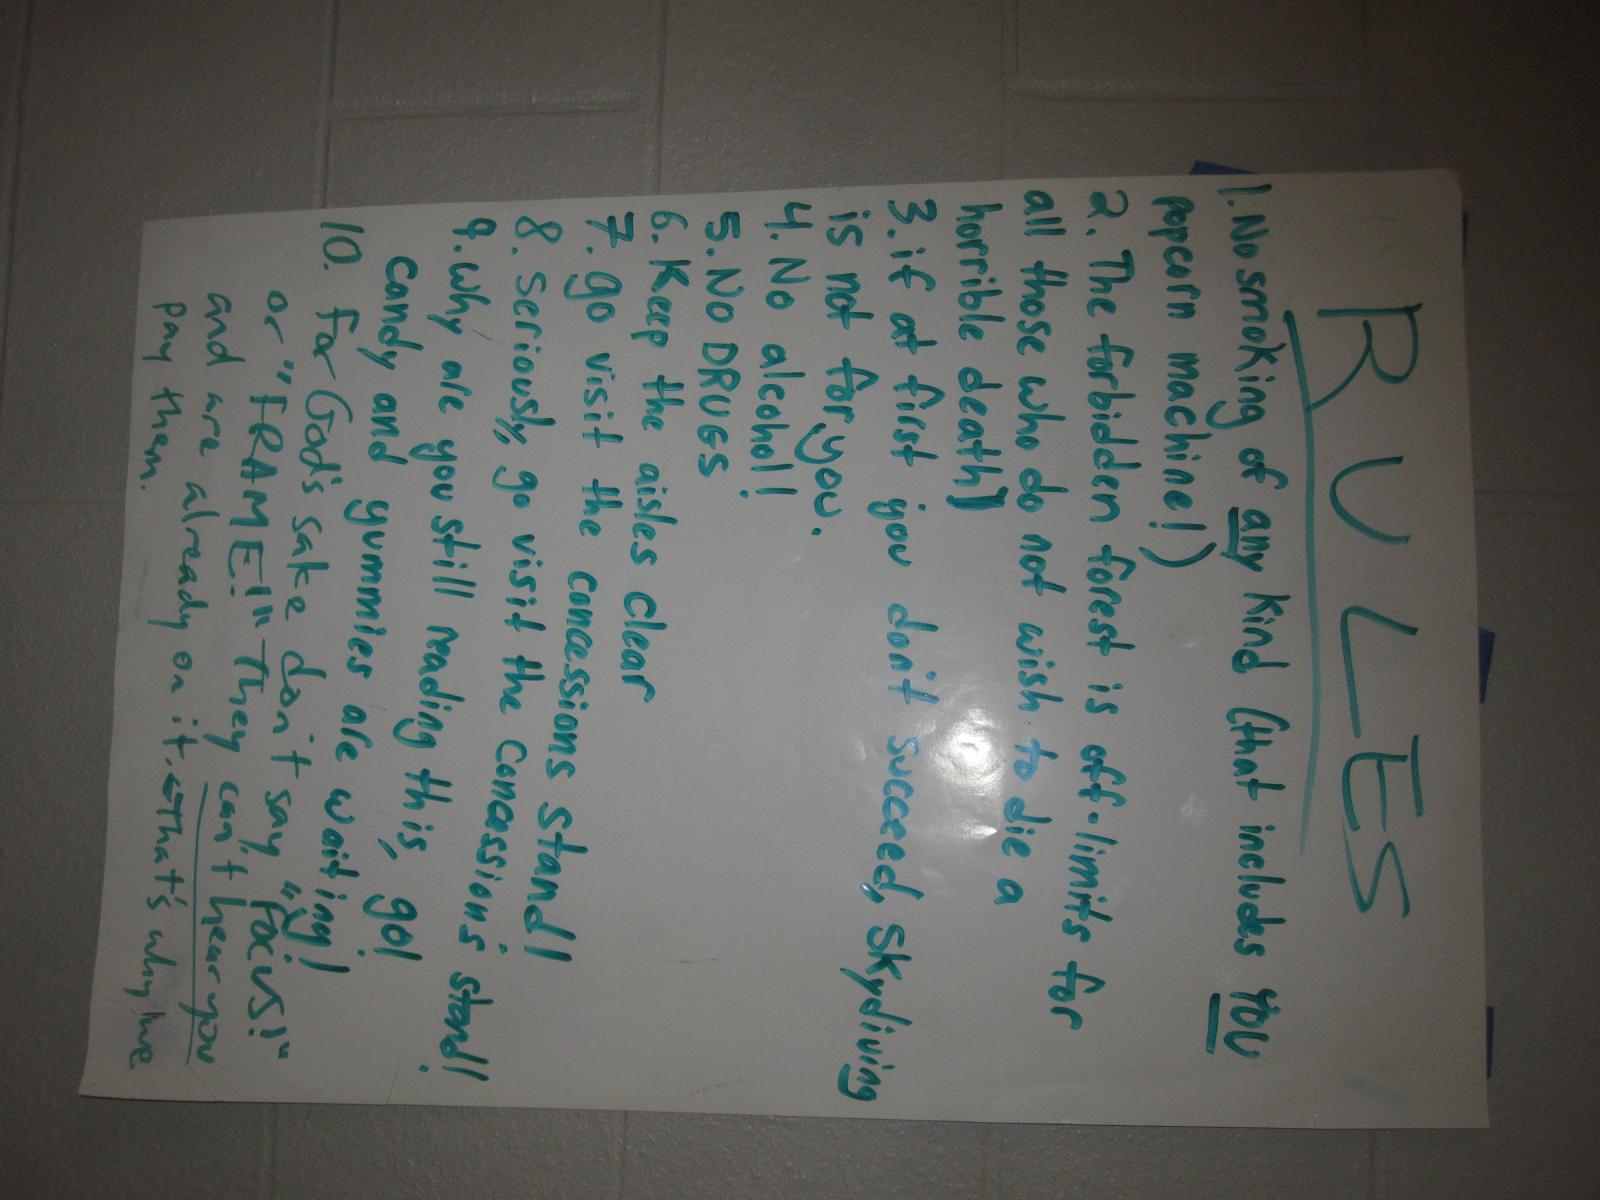 RULES
1. No smoking of any kind (that includes you
popcorn machine!)
2. The forbidden forest is off-limits for
all those who do not wish to die a
horrible death)
3. if at first you don't succeed, skydiving
is not for you.
4. No alcohol!
5. No DRUGS
6. Keep the aisles clear
7. go visit the concessions stand!
8. Seriously, go visit the concessions stand!
9. Why are you still reading this, go!
Candy and gummies are waiting!
10. For God's sake don't say "focus!"
or "FRAME!" They can't hear you
and are already on it. ← That's why we
pay them.